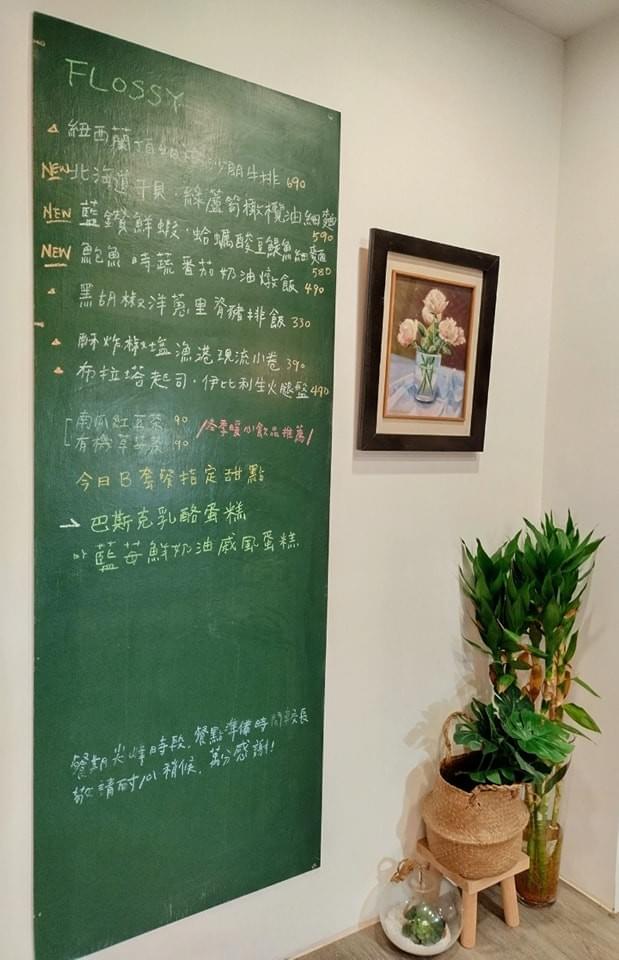 FLOSSY
紐西蘭頂級沙朗牛排 690
NEW 北海道干貝.綠蘆筍橄欖油細麵 590
NEW 藍鑽鮮蝦.蛤蠣酸豆鯷魚細麵 580
NEW 鮑魚時蔬番茄奶油燉飯 490
黑胡椒洋蔥里脊豬排飯 330
酥炸椒塩漁港現流小卷 390
布拉塔起司.伊比利生火腿盤 490
南瓜紅豆茶 90
有機草莓茶 90
/冬季暖心飲品推薦/
今日B套餐指定甜點
巴斯克乳酪蛋糕
藍莓鮮奶油戚風蛋糕
餐期尖峰時段,餐點準備時間較長
敬請耐心稍候,萬分感謝!